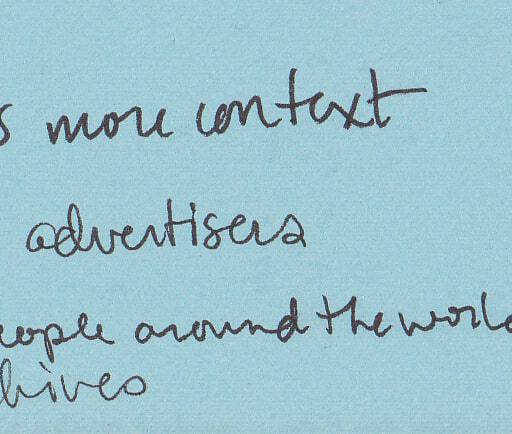 s more context
advertisers
eople around the world
hives